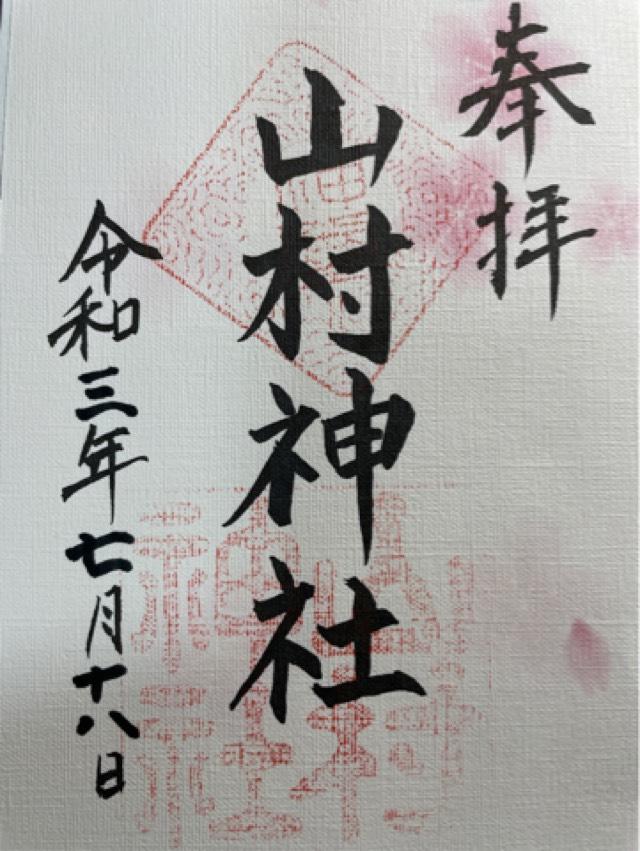 奉拝
山村神社
令和三年七月十八日